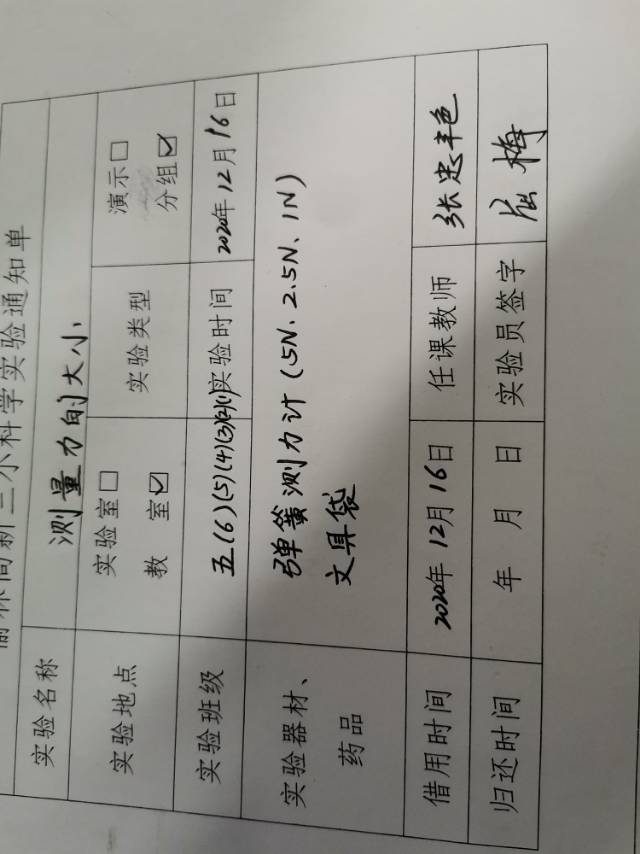 榆林高新三小科学实验通知单
实验名称 测量力的大小
实验地点 实验室□ 教 室☑ 实验类型 演示□ 分组☑
实验班级 五(6)(5)(4)(3)(2)(1) 实验时间 2020年12月16日
实验器材、药品 弹簧测力计(5N、2.5N、1N)
文具袋
借用时间 2020年12月16日 任课教师 张忠艳
归还时间 年 月 日 实验员签字 屈梅